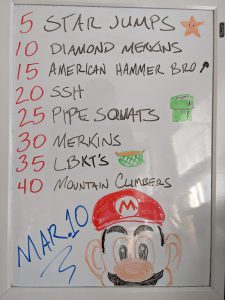 5 STAR JUMPS
10 DIAMOND MERKINS
15 AMERICAN HAMMER BRO
20 SSH
25 PIPE SQUATS
30 MERKINS
35 LBKT'S
40 MOUNTAIN CLIMBERS
M
MAR.10